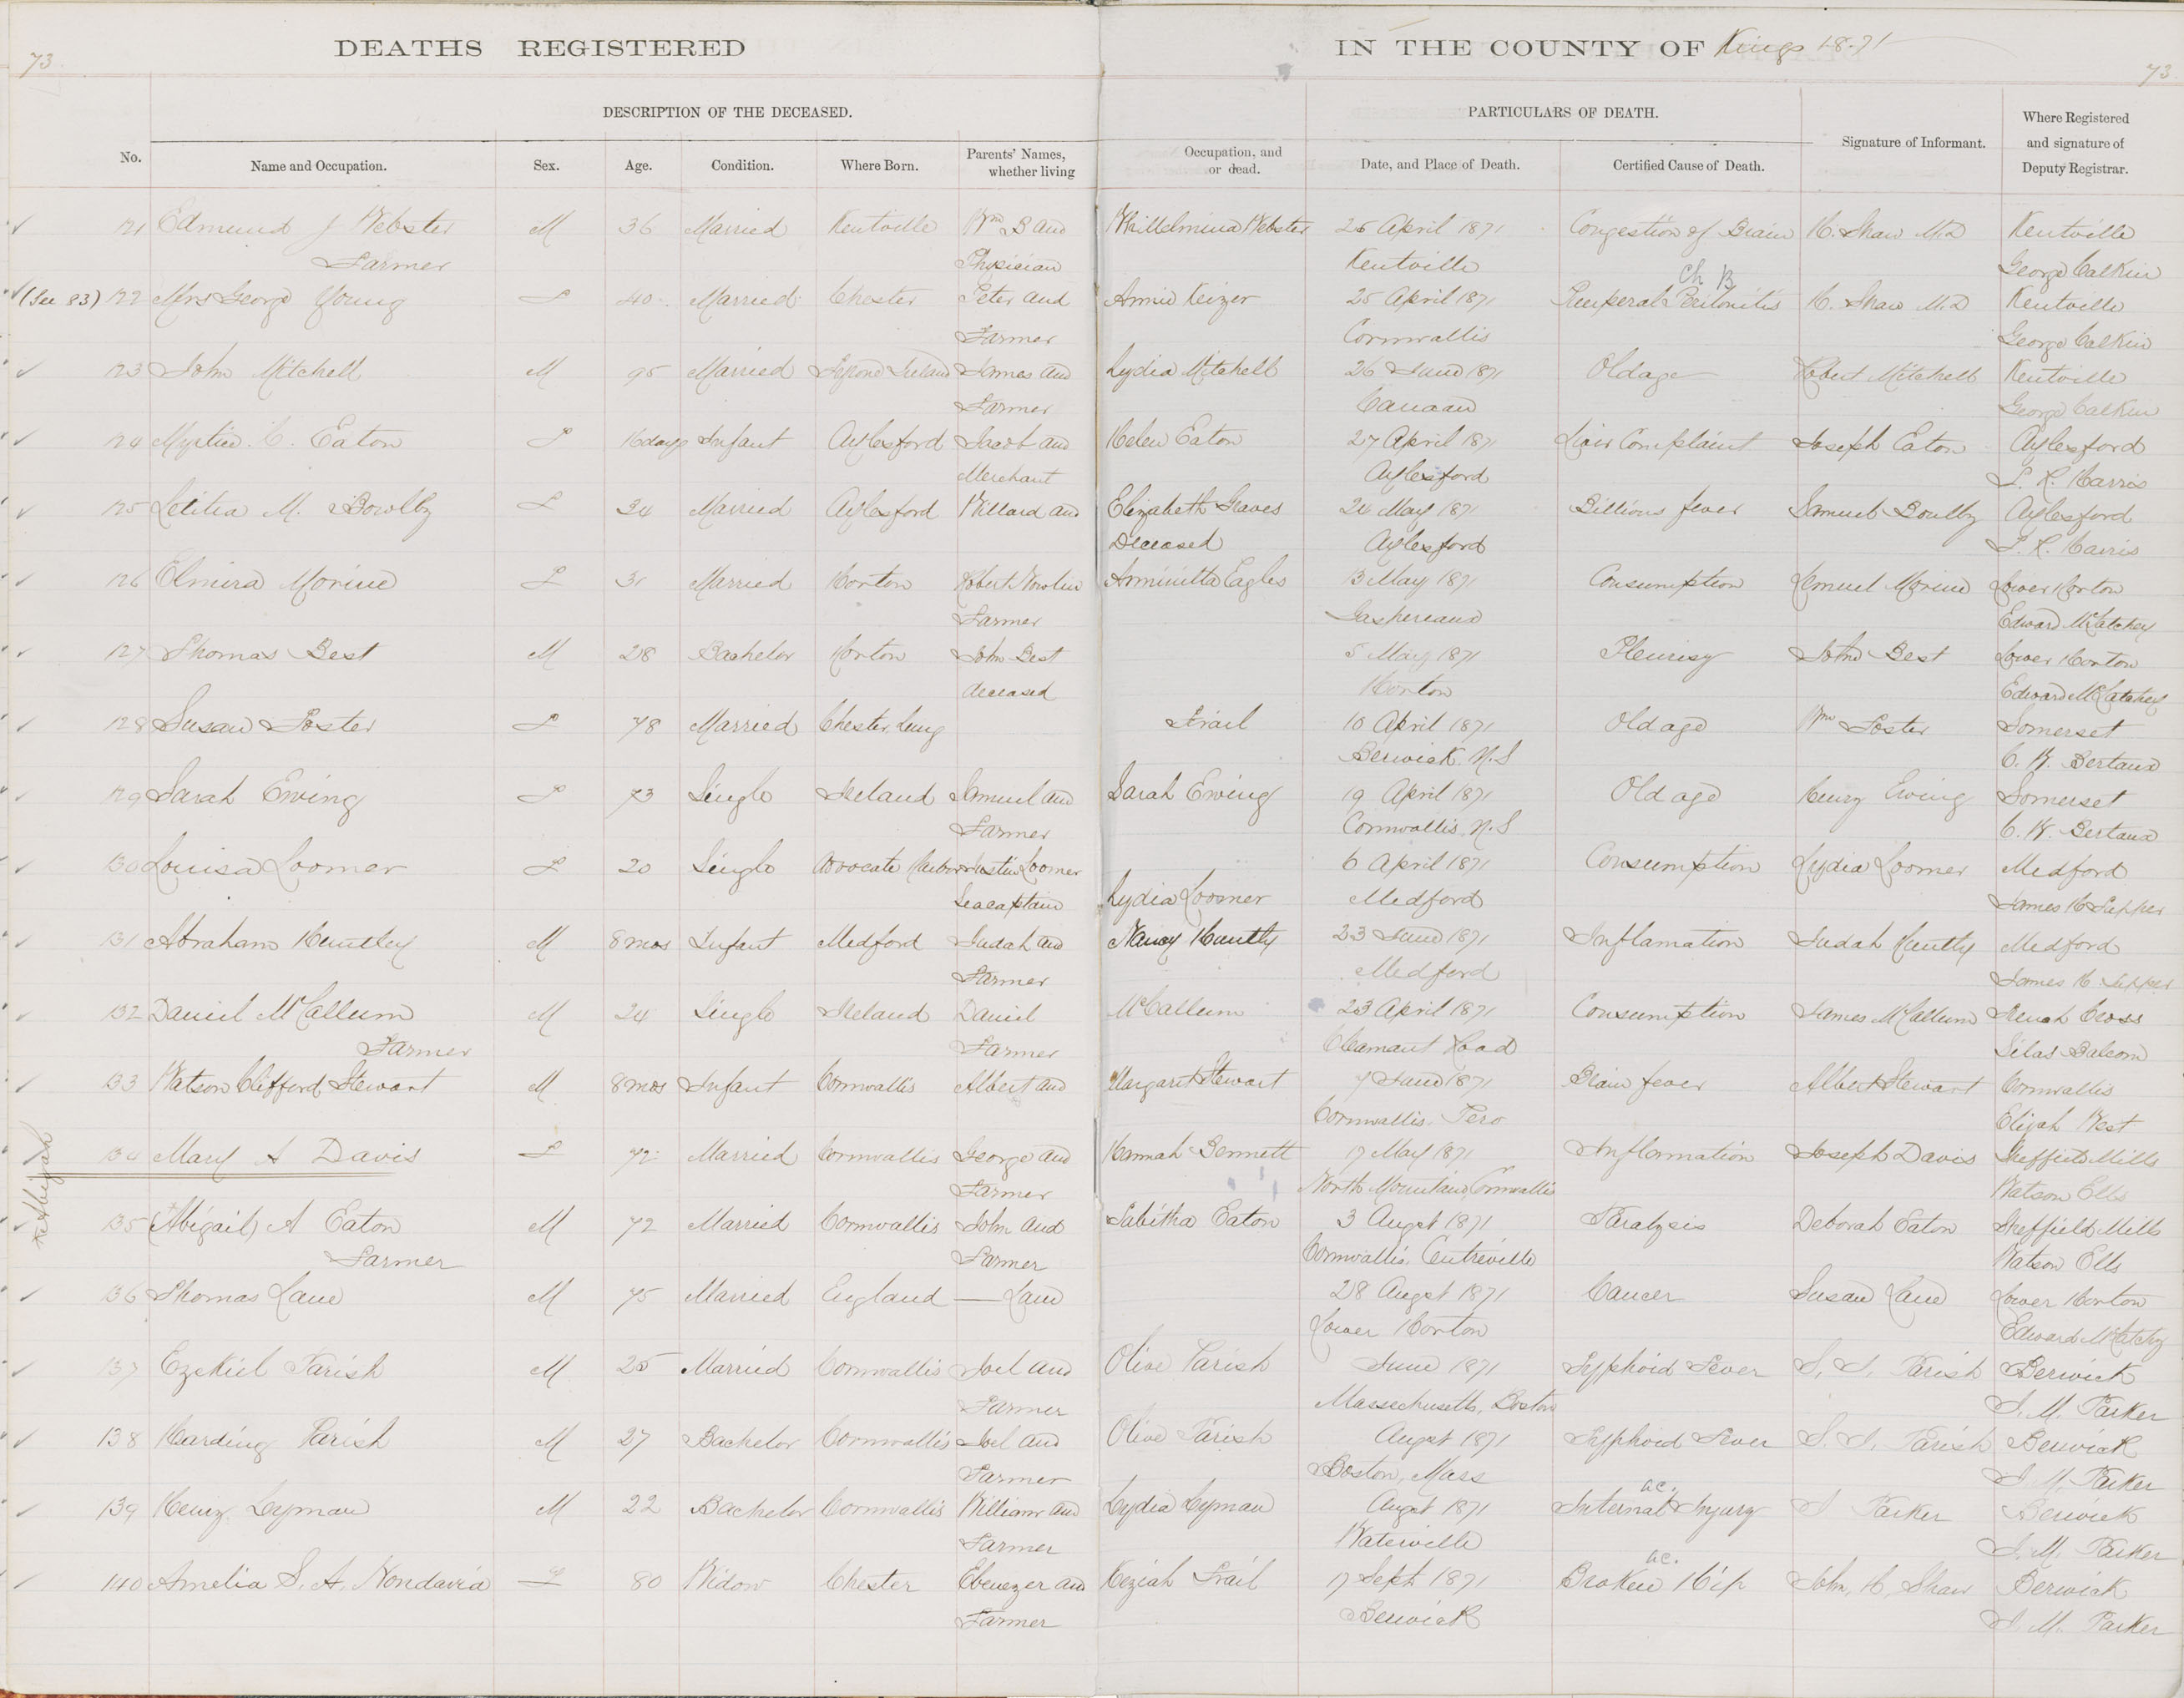 73
DEATHS REGISTERED IN THE COUNTY OF Kings 1871
73
DESCRIPTION OF THE DECEASED. PARTICULARS OF DEATH.
No. Name and Occupation. Sex. Age. Condition. Where Born. Parents' Names, whether living Occupation, and or dead. Date, and Place of Death. Certified Cause of Death. Signature of Informant. Where Registered and signature of Deputy Registrar.
121 Edmund J Webster M 36 Married Kentville Wm B and Whillelmina Webster 25 April 1871 Congestion of Brain H. Shaw M.D Kentville
Farmer Physician Kentville George Calkin
Ch B
(See 83) 122 Mrs George Young F 40 Married Chester Peter and Annie Keizer 25 April 1871 Peritonitis H. Shaw M.D Kentville
Farmer Cornwallis George Calkin
123 John Mitchell M 95 Married Ireland James and Lydia Mitchell 26 June 1871 Old age Robert Mitchell Kentville
Farmer Canaan George Calkin
124 C. Eaton F 16 days Infant Aylesford Jacob and Helen Eaton 27 April 1871 Liver Complaint Joseph Eaton Aylesford
Merchant Aylesford L. R. Harris
125 Letitia M. Bowlby F 34 Married Aylesford Willard and Elizabeth Graves 24 May 1871 Billious fever Samuel Boulby Aylesford
Deceased Aylesford L. R. Harris
126 Elmira Morine F 31 Married Horton Robert Arminilla Eagles 13 May 1871 Consumption Lemuel Morine Lower Horton
Farmer Gaspereaux Edward McLatchey
127 Thomas Best M 28 Bachelor Horton John Best 5 May 1871 Pleurisy John Best Lower Horton
deceased Horton Edward McLatchey
128 Susan Foster F 78 Married Chester Lung Frail 10 April 1871 Old age Wm Foster Somerset
Berwick N.S C. W. Bertaux
129 Sarah Ewing F 73 Single Ireland Samuel and Sarah Ewing 19 April 1871 Old age Henry Ewing Somerset
Farmer Cornwallis, N.S C. W. Bertaux
130 Louisa Loomer F 20 Single Advocate Harbor Loomer 6 April 1871 Consumption Lydia Loomer Medford
Seacaptain Lydia Loomer Medford James H Tupper
131 Abraham Huntley M 8 mos Infant Medford Judah and Nancy Huntly 23 June 1871 Inflamation Judah Huntly Medford
Farmer Medford James H. Tupper
132 Daniel McCallum M 24 Single Ireland Daniel McCallum 23 April 1871 Consumption James McCallum French Cross
Farmer Farmer Road Silas Balcom
133 Watson Clifford Stewart M 8 mos Infant Cornwallis Albert and Margaret Stewart 7 June 1871 Brain fever Albert Stewart Cornwallis
Cornwallis. Pero Elijah West
134 Mary A Davis F 72 Married Cornwallis George and Hannah Bennett 17 May 1871 Inflamation Joseph Davis Sheffield Mills
Farmer North Mountain, Cornwallis Watson Ells
Abijah
135 (Abigail) A Eaton M 72 Married Cornwallis John and Tabitha Eaton 3 Augst 1871 Paralysis Deborah Eaton Sheffield Mills
Farmer Farmer Cornwallis. Centreville Watson Ells
136 Thomas Lane M 75 Married England — Lane 28 Augst 1871 Cancer Susan Lane Lower Horton
Lower Horton Edward McLatchy
137 Ezekiel Parish M 25 Married Cornwallis Joel and Olive Parish June 1871 Typhoid Fever Parish Berwick
Farmer Massachusetts, Boston S. M. Parker
138 Harding Parish M 27 Bachelor Cornwallis Joel and Olive Parish Augst 1871 Typhoid Fever Parish Berwick
Farmer Boston, Mass S. M. Parker
ac.
139 Henry Lyman M 22 Bachelor Cornwallis William and Lydia Lyman Augst 1871 Internal Injury S Parker Berwick
Farmer Waterville S. M. Parker
ac.
140 Amelia S. A. Nondavia F 80 Widow Chester Ebenezer and Keziah Frail 17 Sept 1871 Broken Hip John, H, Shaw Berwick
Farmer Berwick S. M. Parker